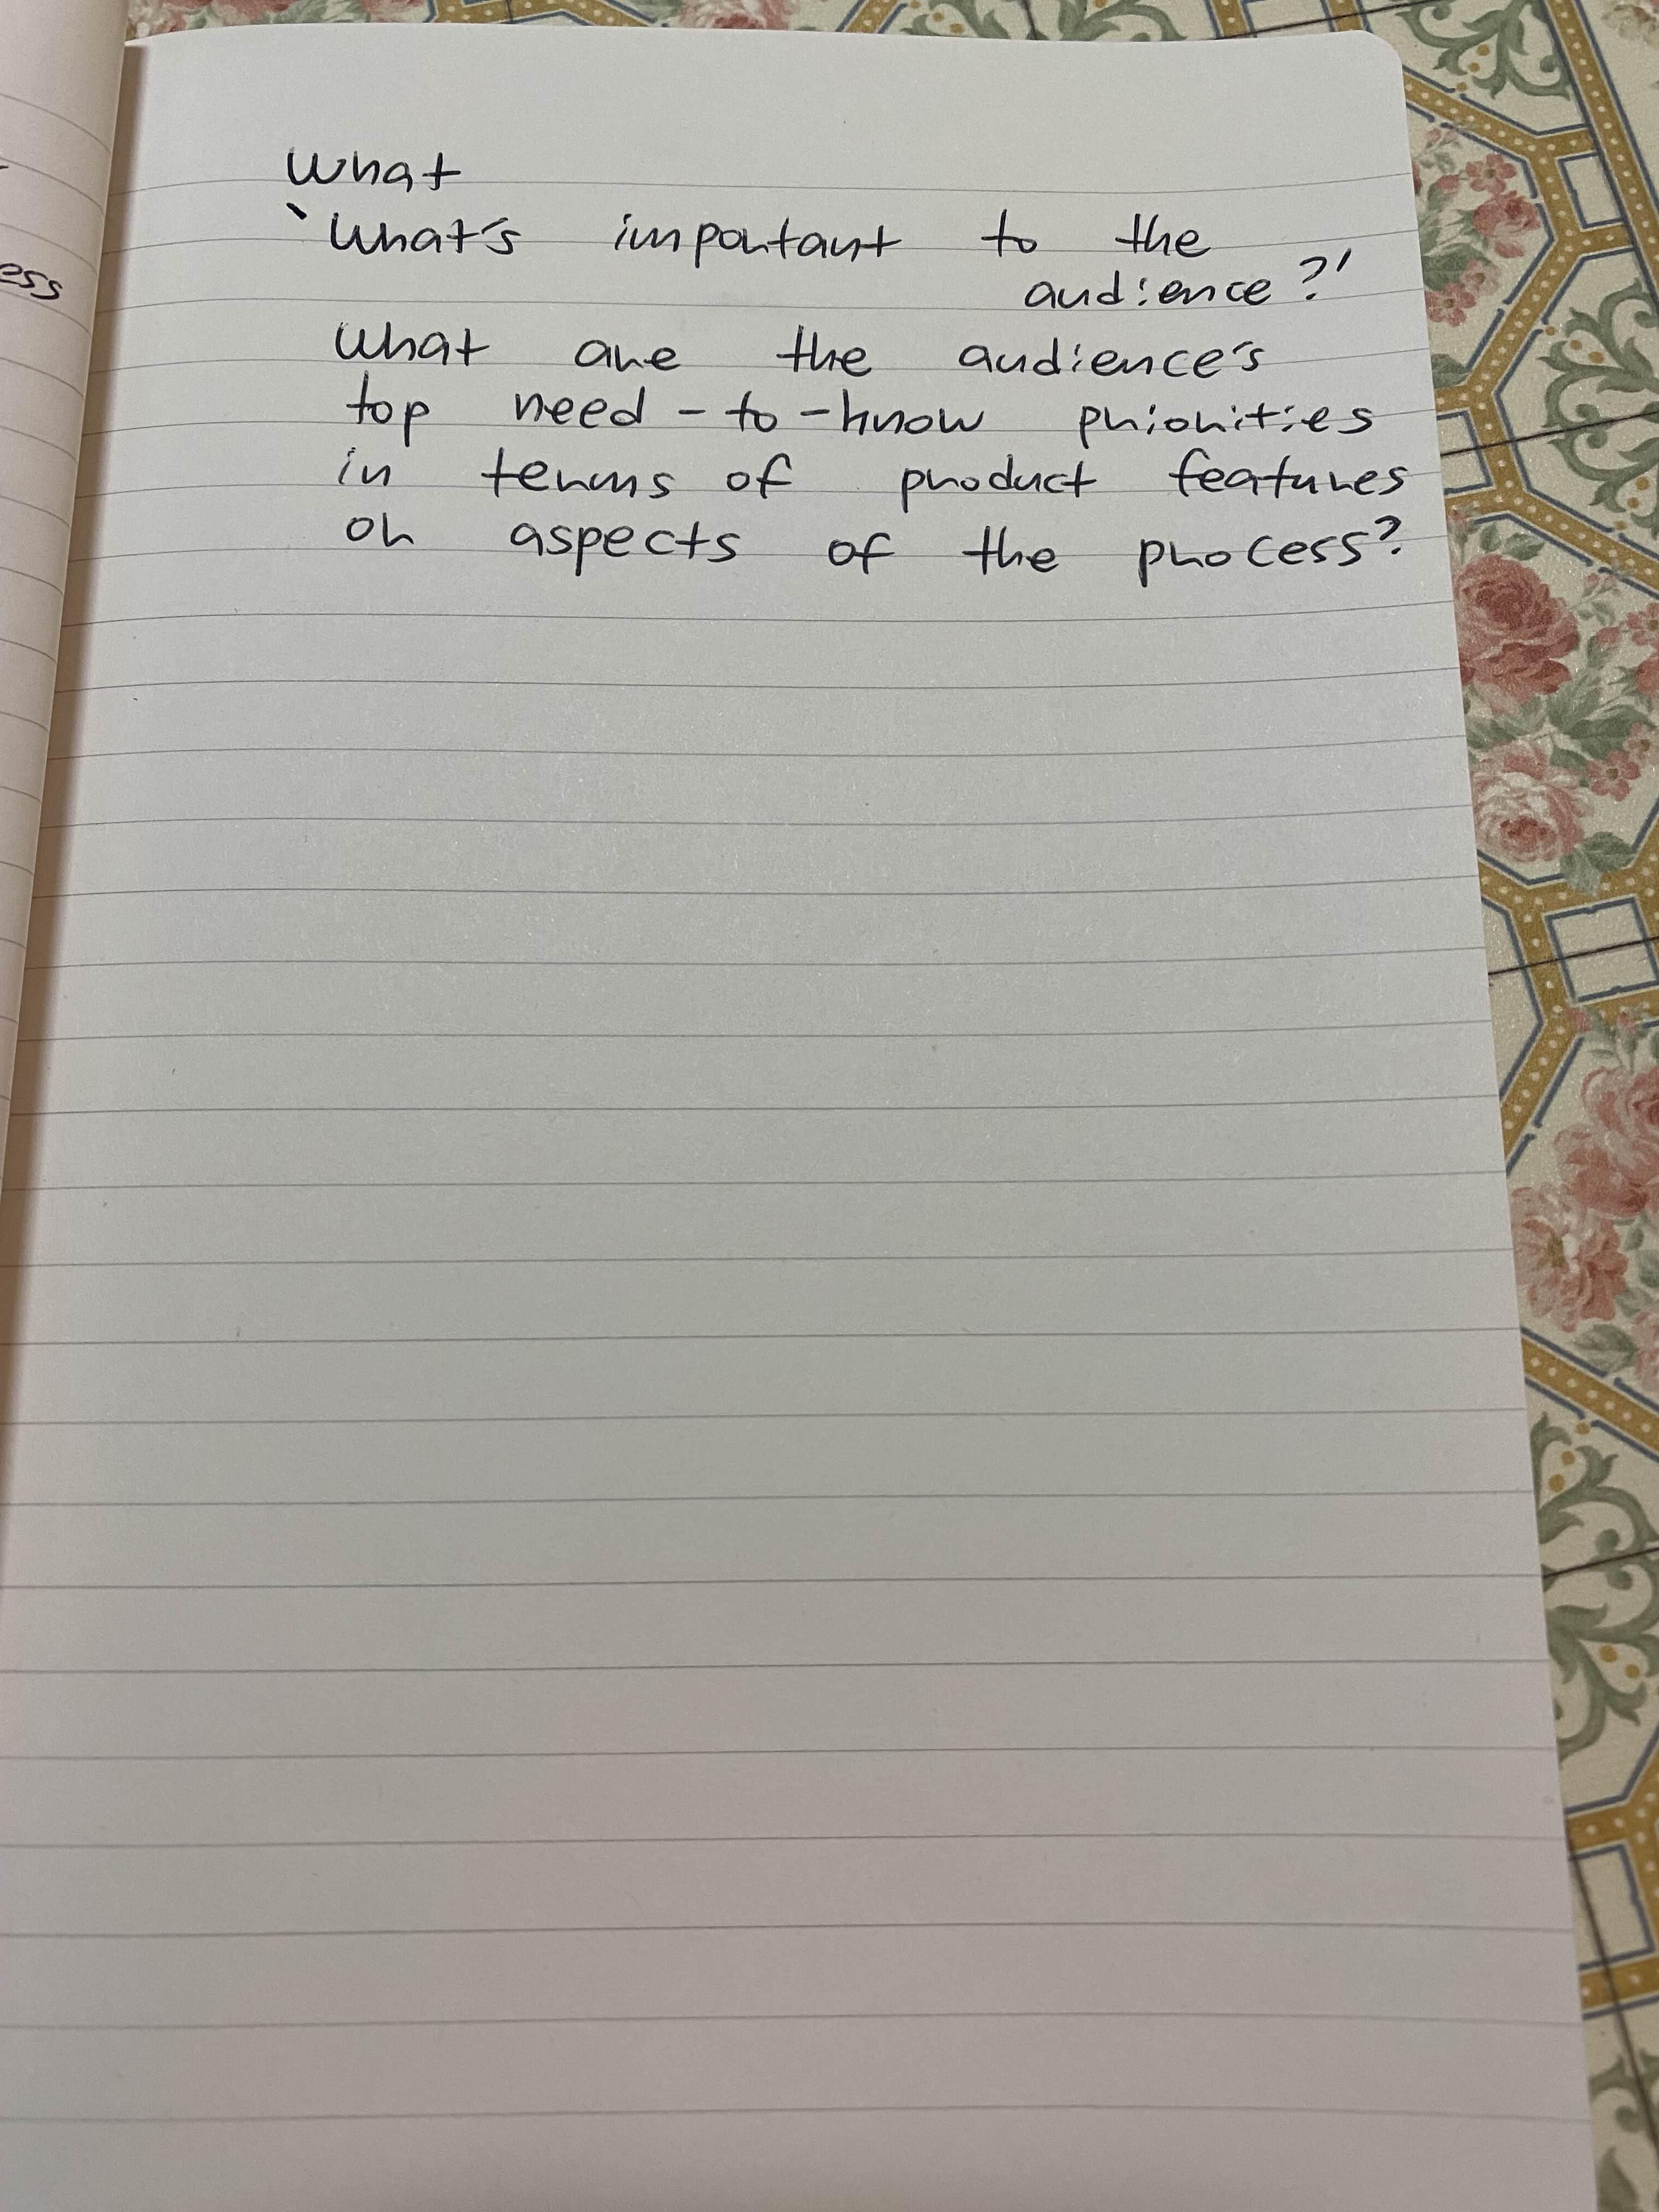 What
'What's important to the
audience?'
What are the audience's
top need-to-know priorities
in terms of product features
or aspects of the process?
ess